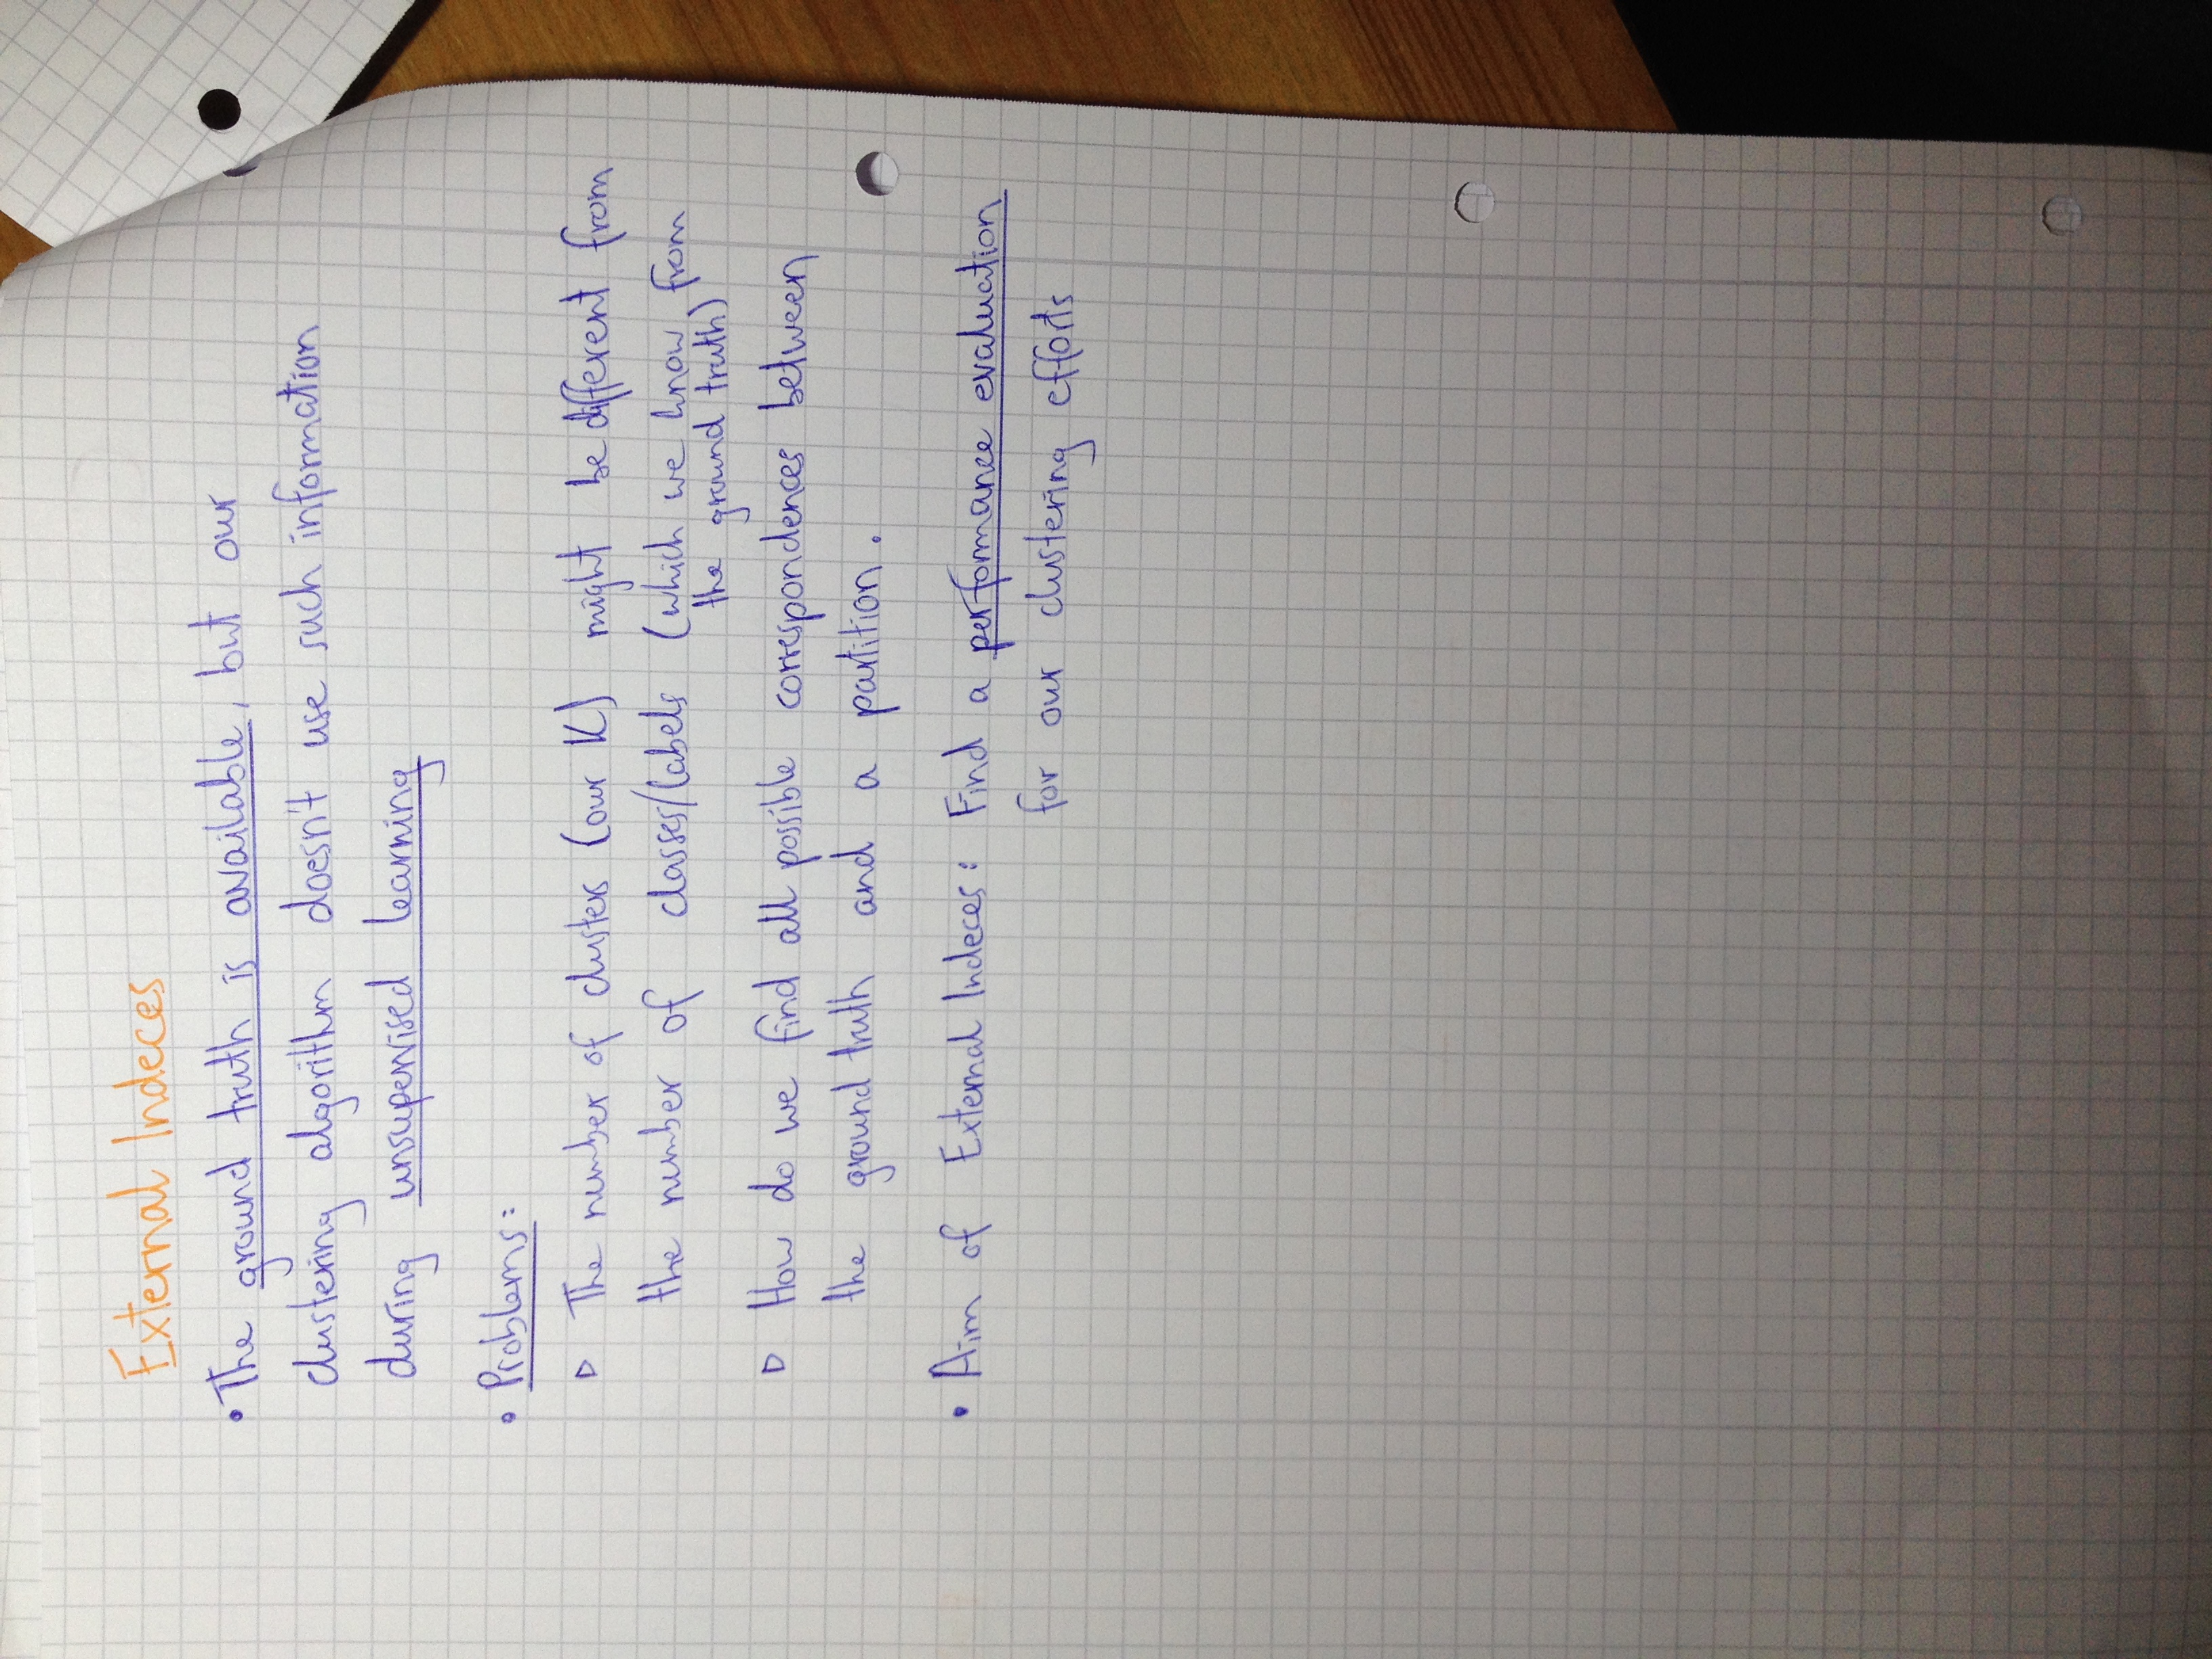 External Indeces
• The ground truth is available, but our
clustering algorithm doesn't use such information
during unsupervised learning
• Problems:
▷ The number of clusters (our K) might be different from
the number of classes/labels (which we know from
the ground truth)
▷ How do we find all possible correspondences between
the ground truth and a partition.
• Aim of External Indeces: Find a performance evaluation
for our clustering efforts